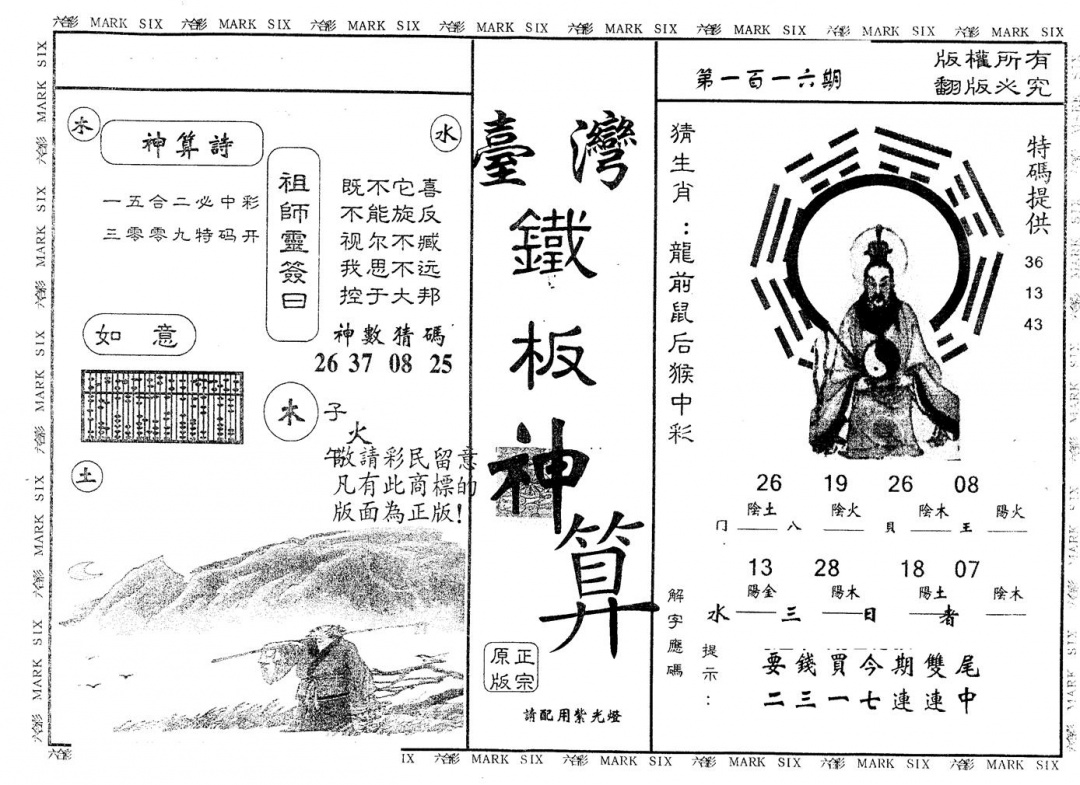 六合彩 MARK SIX 六合彩 MARK SIX 六合彩 MARK SIX 六合彩 MARK SIX 六合彩 MARK SIX 六合彩 MARK SIX 六合彩 MARK SIX 六合彩 MARK SIX
第一百一六期
版權所有
翻版必究
木
神算詩
水
一五合二必中彩
三零零九特码开
祖師靈簽曰
既不它喜
不能旋反
视尔不臧
我思不远
控于大邦
如意
神數猜碼
26 37 08 25
木
子
火
午
敬請彩民留意
凡有此商標的
版面為正版!
土
臺灣
鐵
板
神
算
正宗
原版
請配用紫光燈
猜生肖:龍前鼠后猴中彩
特碼提供
36
13
43
26 19 26 08
陰土 陰火 陰木 陽火
门 八 貝 王
13 28 18 07
陽金 陽水 陽土 陰木
水 三 日 者
解字應碼
提示:
要錢買今期雙尾
二三一七連連中
IX 六合彩 MARK SIX 六合彩 MARK SIX 六合彩 MARK SIX 六合彩 MARK SIX 六合彩 MARK SIX